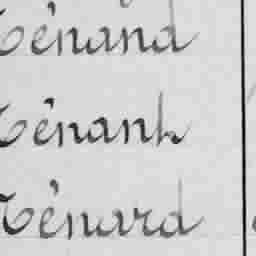 Ténand
Ténanh
Ténard